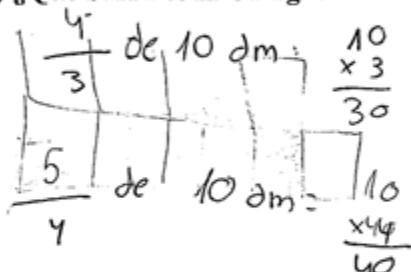 4/3 de 10 dm:
10
× 3
30
5/4 de 10 dm =
10
×4
40